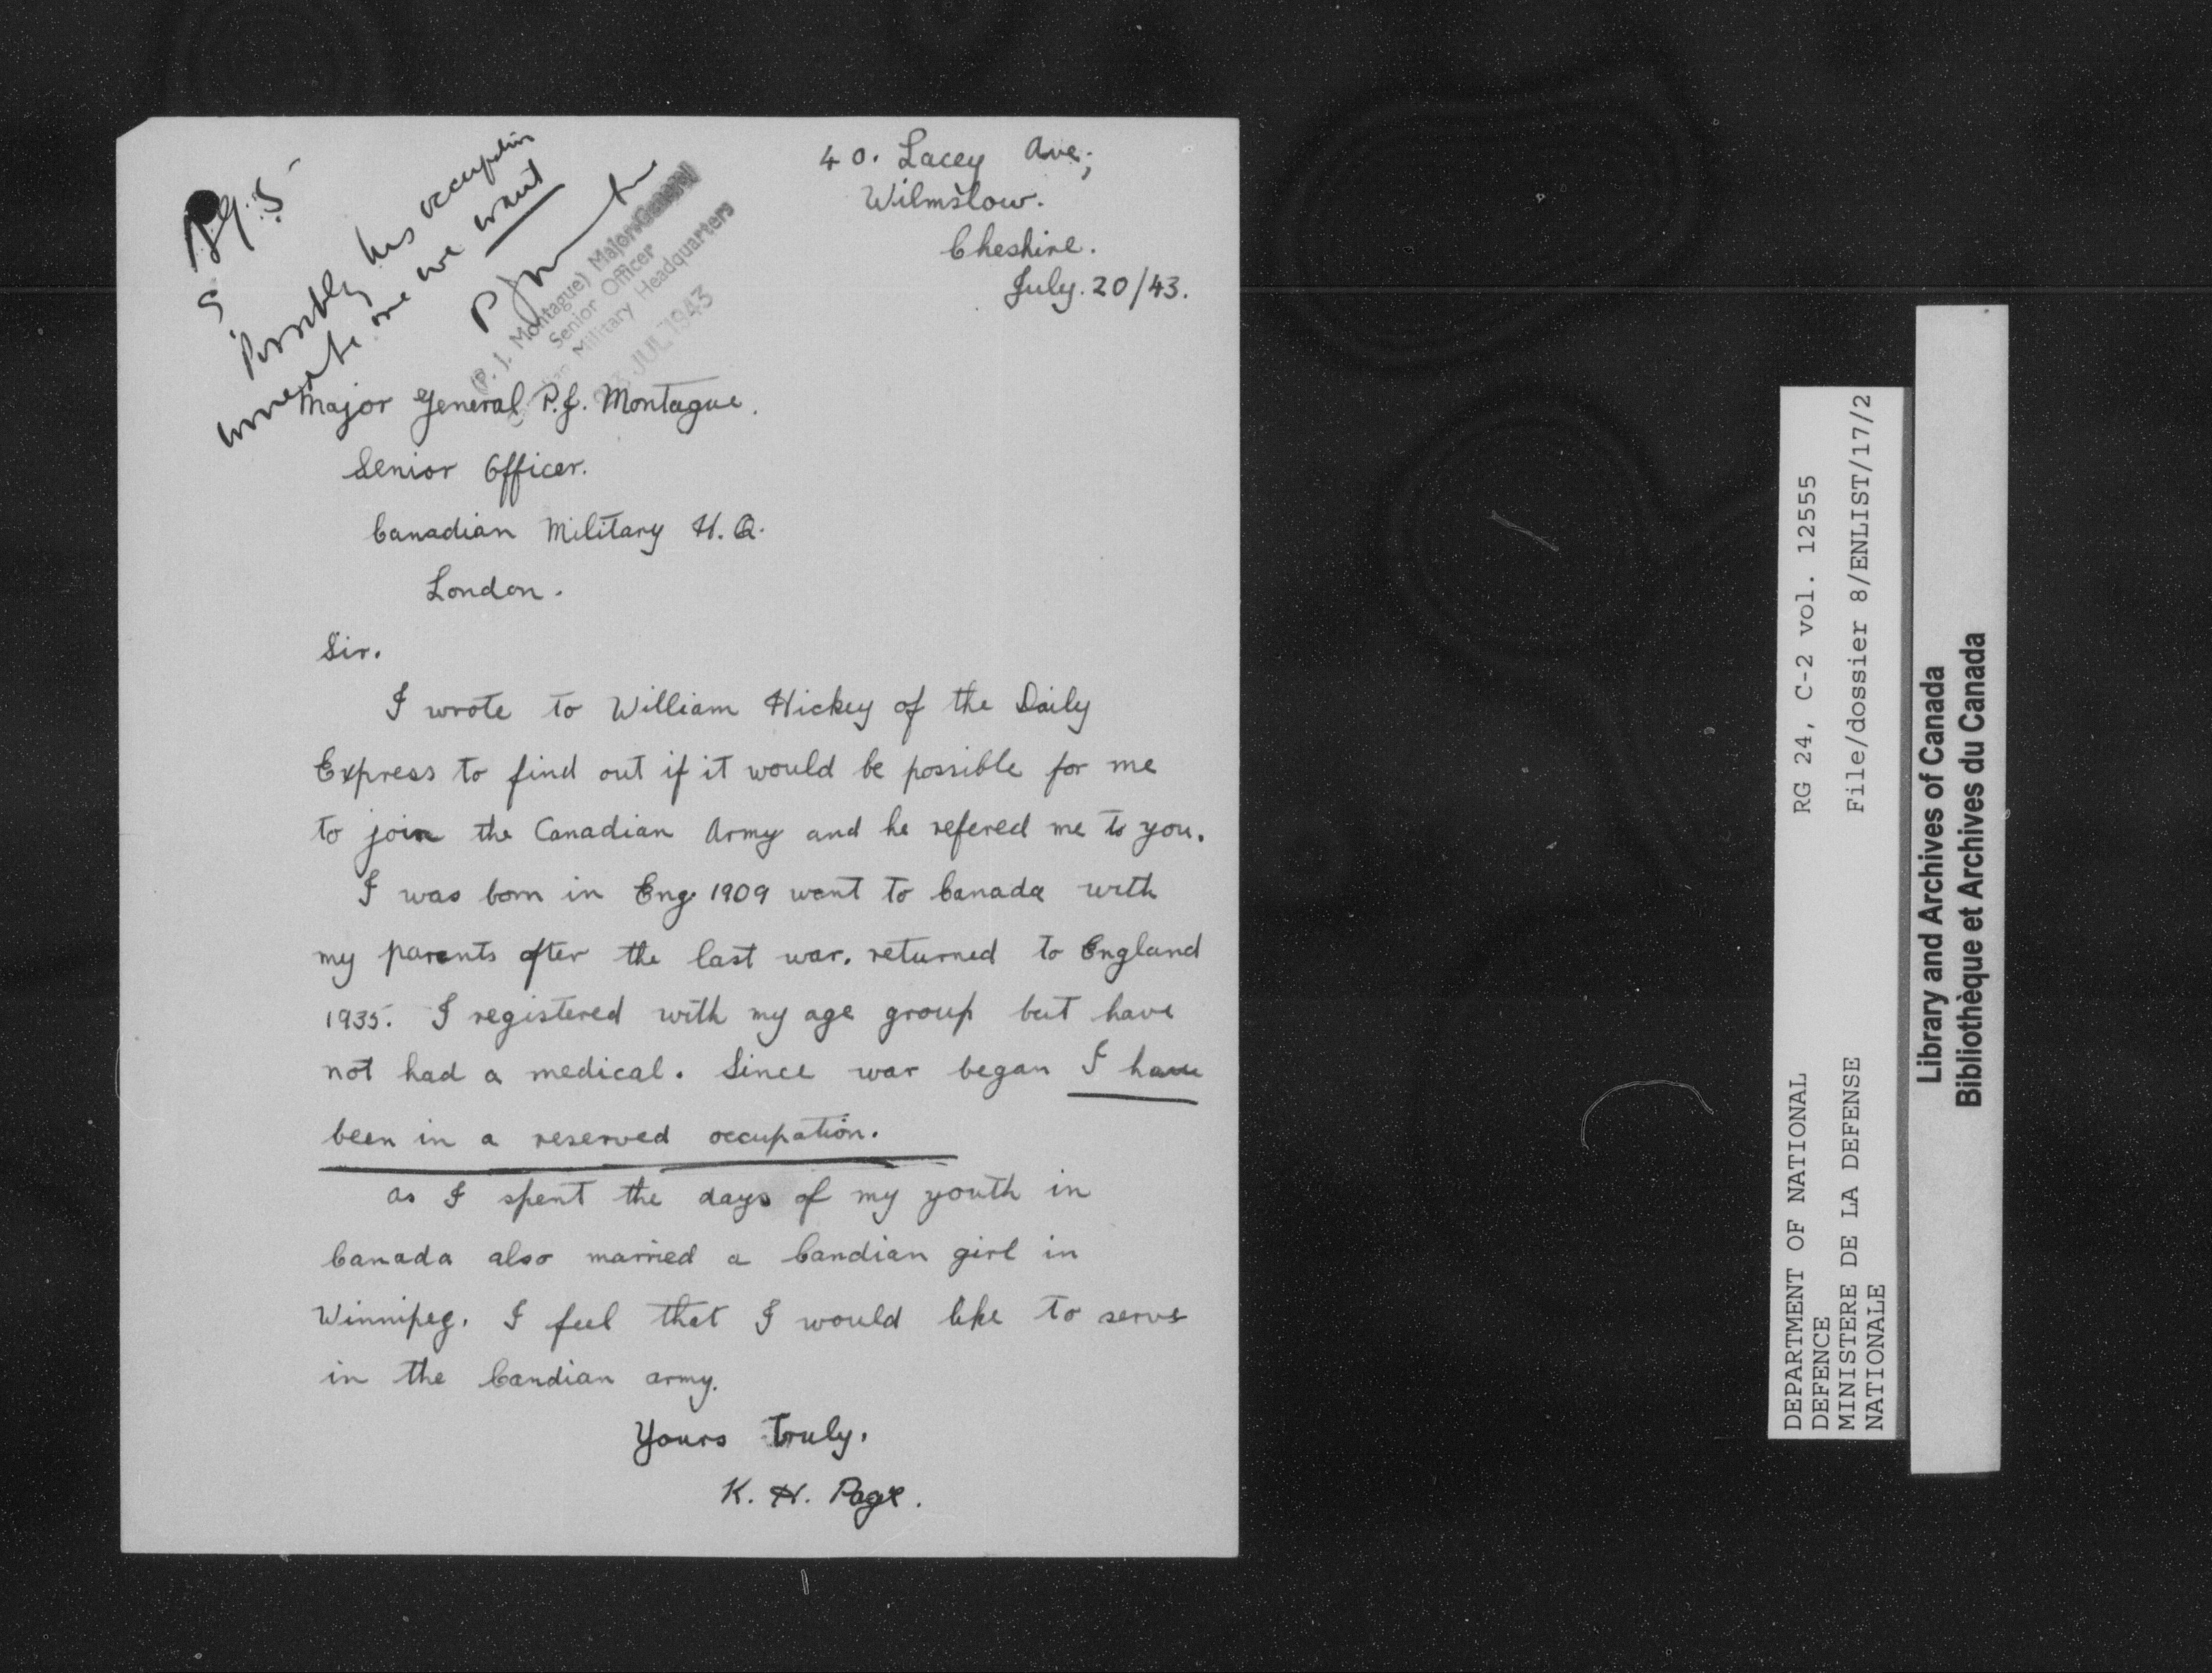 40. Lacey Ave;
Wilmslow.
Cheshire.
July. 20/43.
Possibly his occupation
one we want
(P. J. Montague) Major-General
Senior Officer
Military Headquarters
JUL 1943
Major General P.J. Montague.
Senior Officer.
Canadian Military H.Q.
London.
Sir.
I wrote to William Hickey of the Daily
Express to find out if it would be possible for me
to join the Canadian Army and he refered me to you.
I was born in Eng. 1909 went to Canada with
my parents after the last war. returned to England
1935. I registered with my age group but have
not had a medical. Since war began I have
been in a reserved occupation.
As I spent the days of my youth in
Canada also married a Candian girl in
Winnipeg. I feel that I would like to serve
in the Candian army.
Yours Truly.
K. H. Page.
DEPARTMENT OF NATIONAL
DEFENCE
MINISTERE DE LA DEFENSE
NATIONALE
RG 24, C-2 vol. 12555
File/dossier 8/ENLIST/17/2
Library and Archives of Canada
Bibliothèque et Archives du Canada